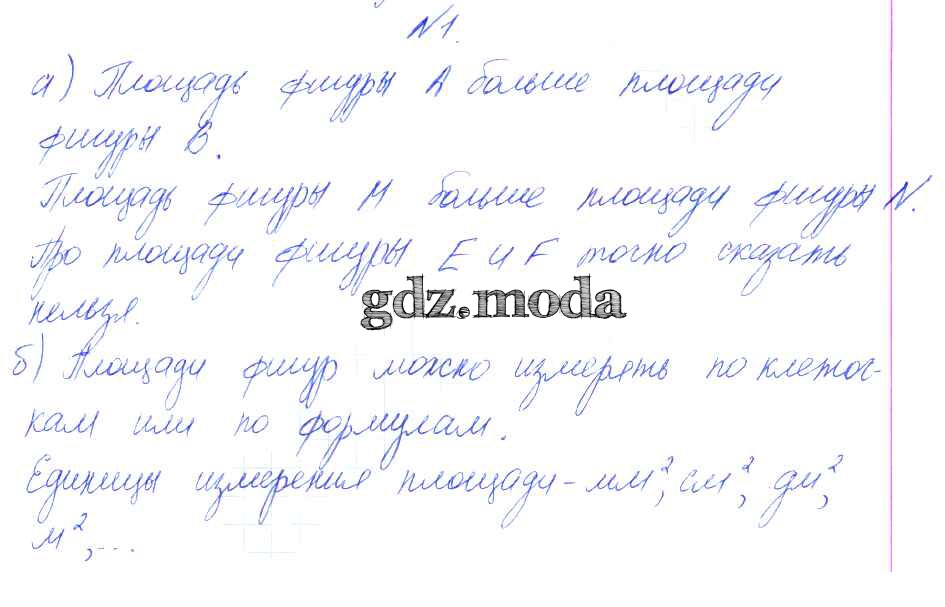 №1.
а) Площадь фигуры А больше площади
фигуры В.
Площадь фигуры М больше площади фигуры N.
Про площади фигуры Е и F точно сказать
нельзя.
gdz.moda
б) Площади фигур можно измерять по клеточ-
кам или по формулам.
Единицы измерения площади - мм², см², дм²,
м², ...